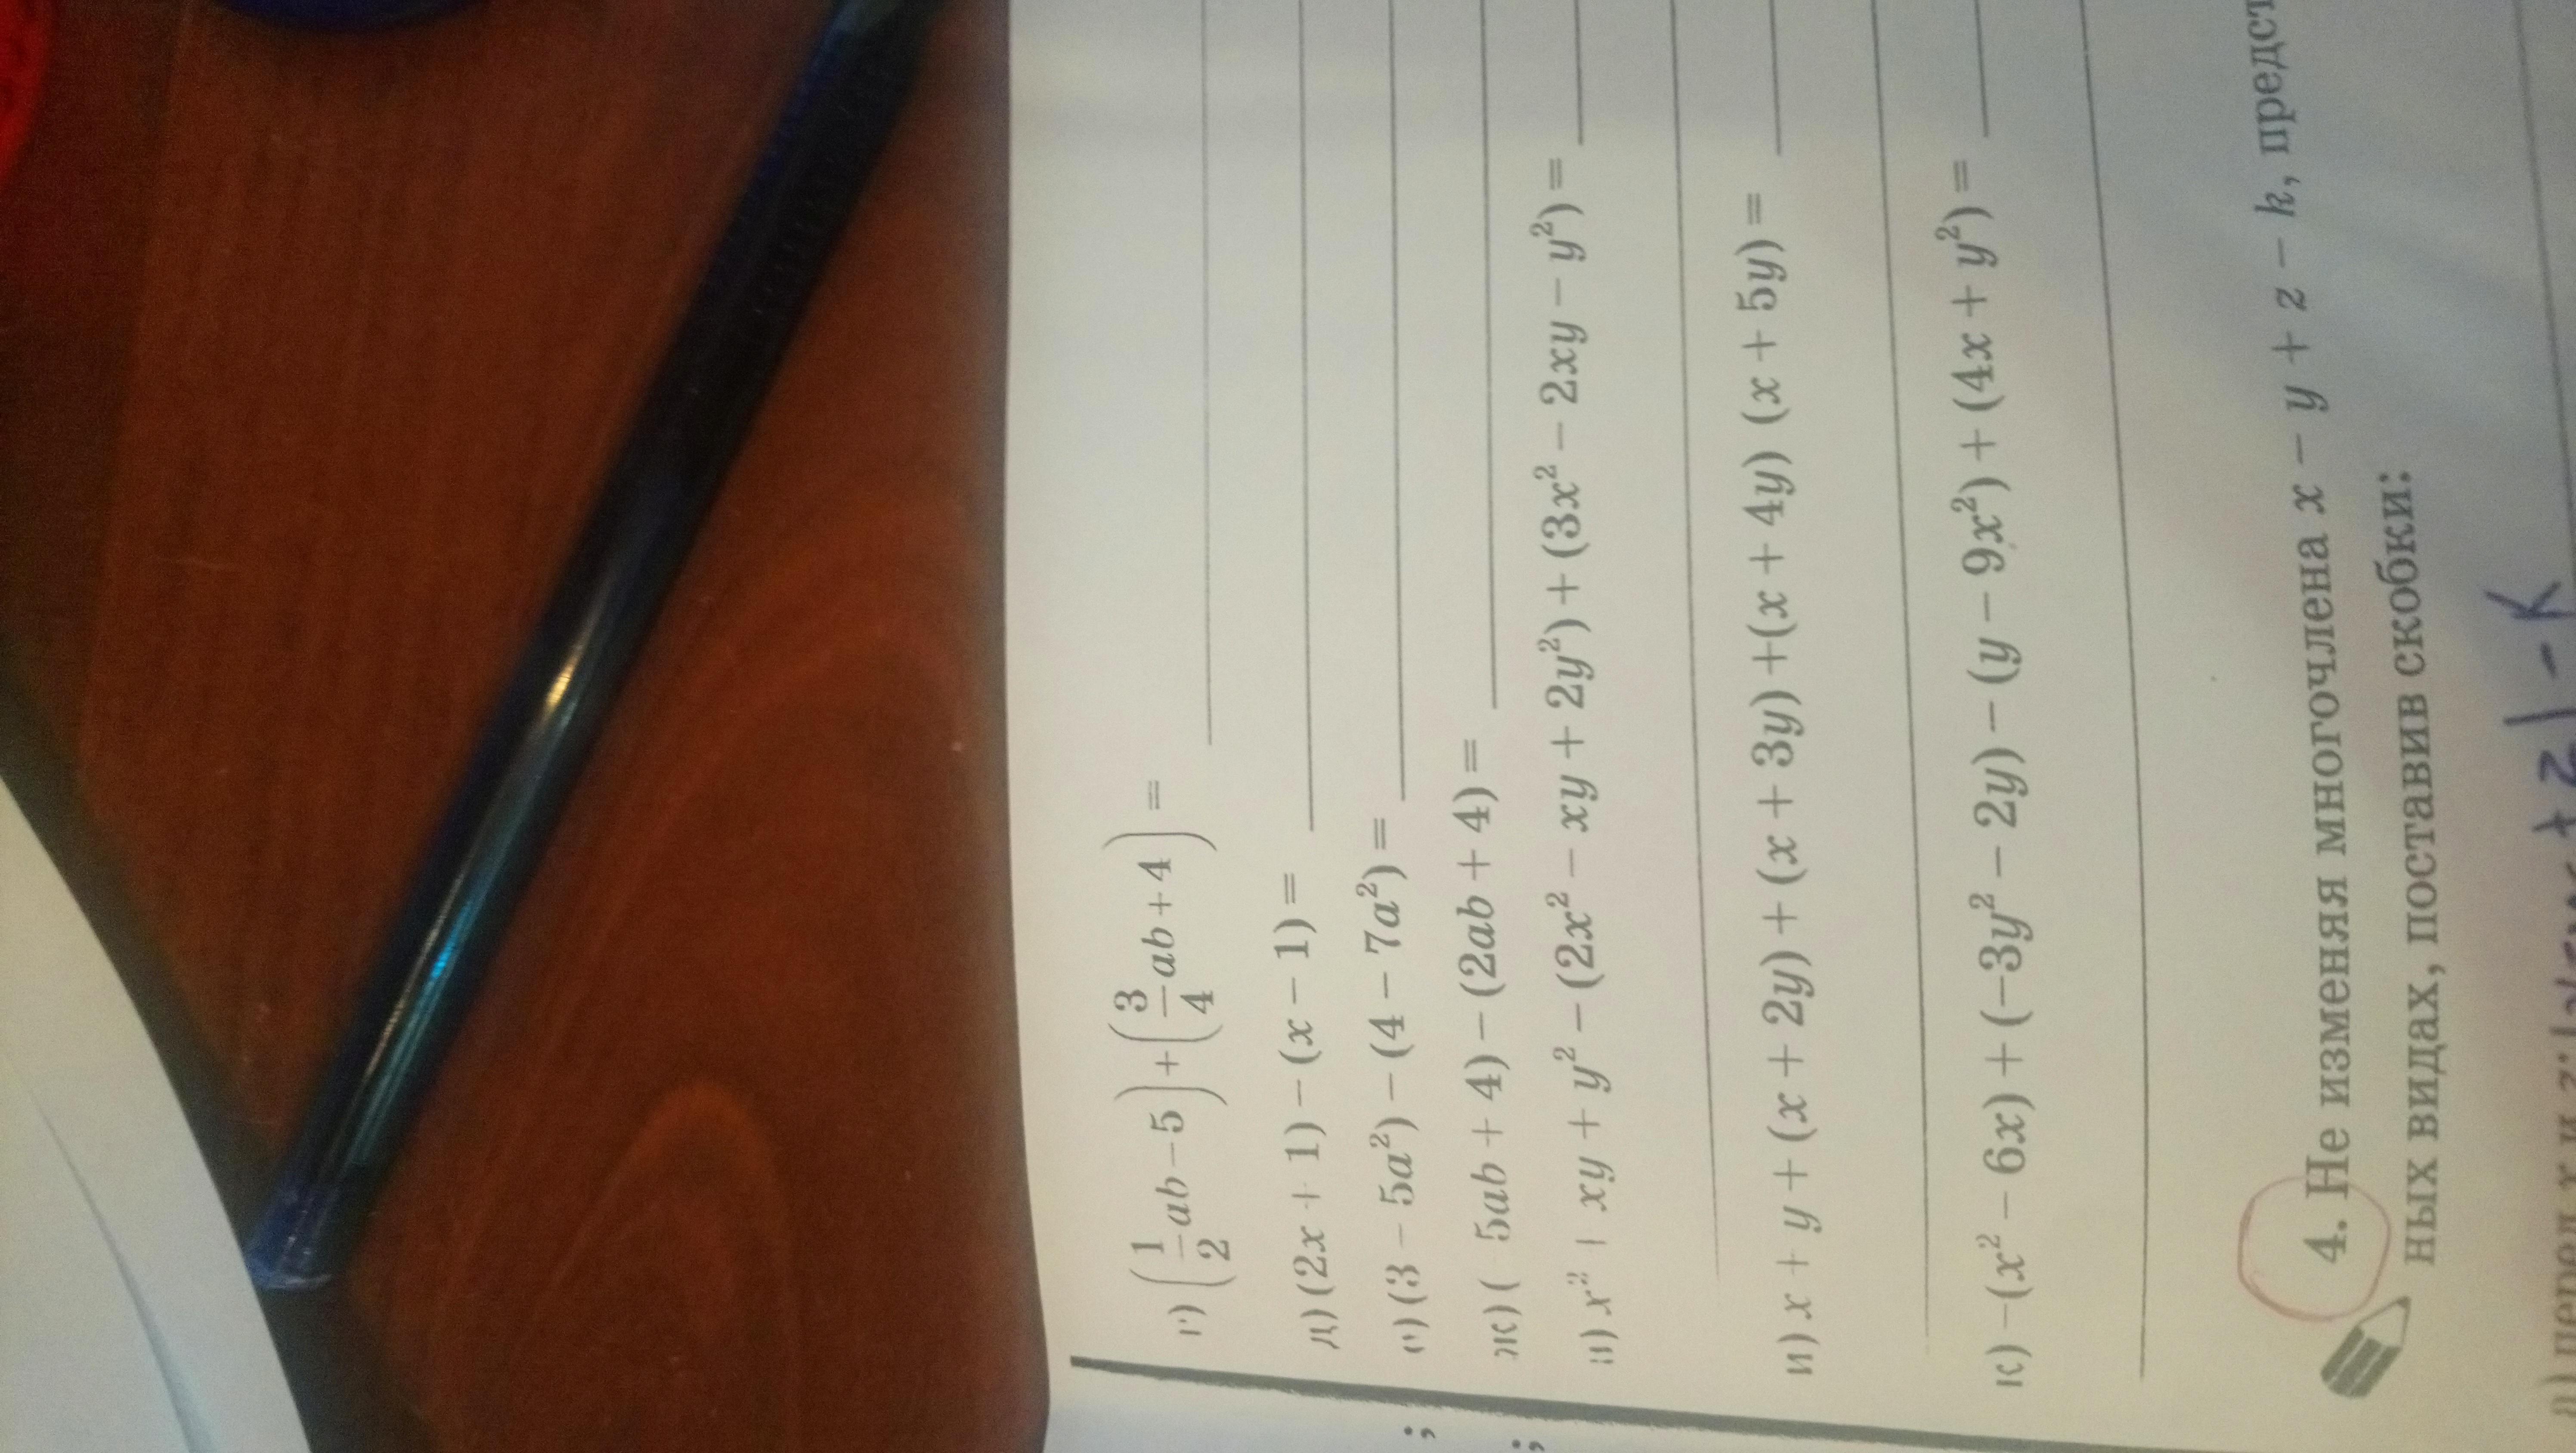 г) (1/2 ab − 5) + (3/4 ab + 4) =
д) (2x + 1) − (x − 1) =
е) (3 − 5a²) − (4 − 7a²) =
ж) ( 5ab + 4) − (2ab + 4) =
з) x² + xy + y² − (2x² − xy + 2y²) + (3x² − 2xy − y²) =
и) x + y + (x + 2y) + (x + 3y) +(x + 4y) (x + 5y) =
к) −(x² − 6x) + (−3y² − 2y) − (y − 9x²) + (4x + y²) =
4. Не изменяя многочлена x − y + z − k, предст
ных видах, поставив скобки:
+ z) − к